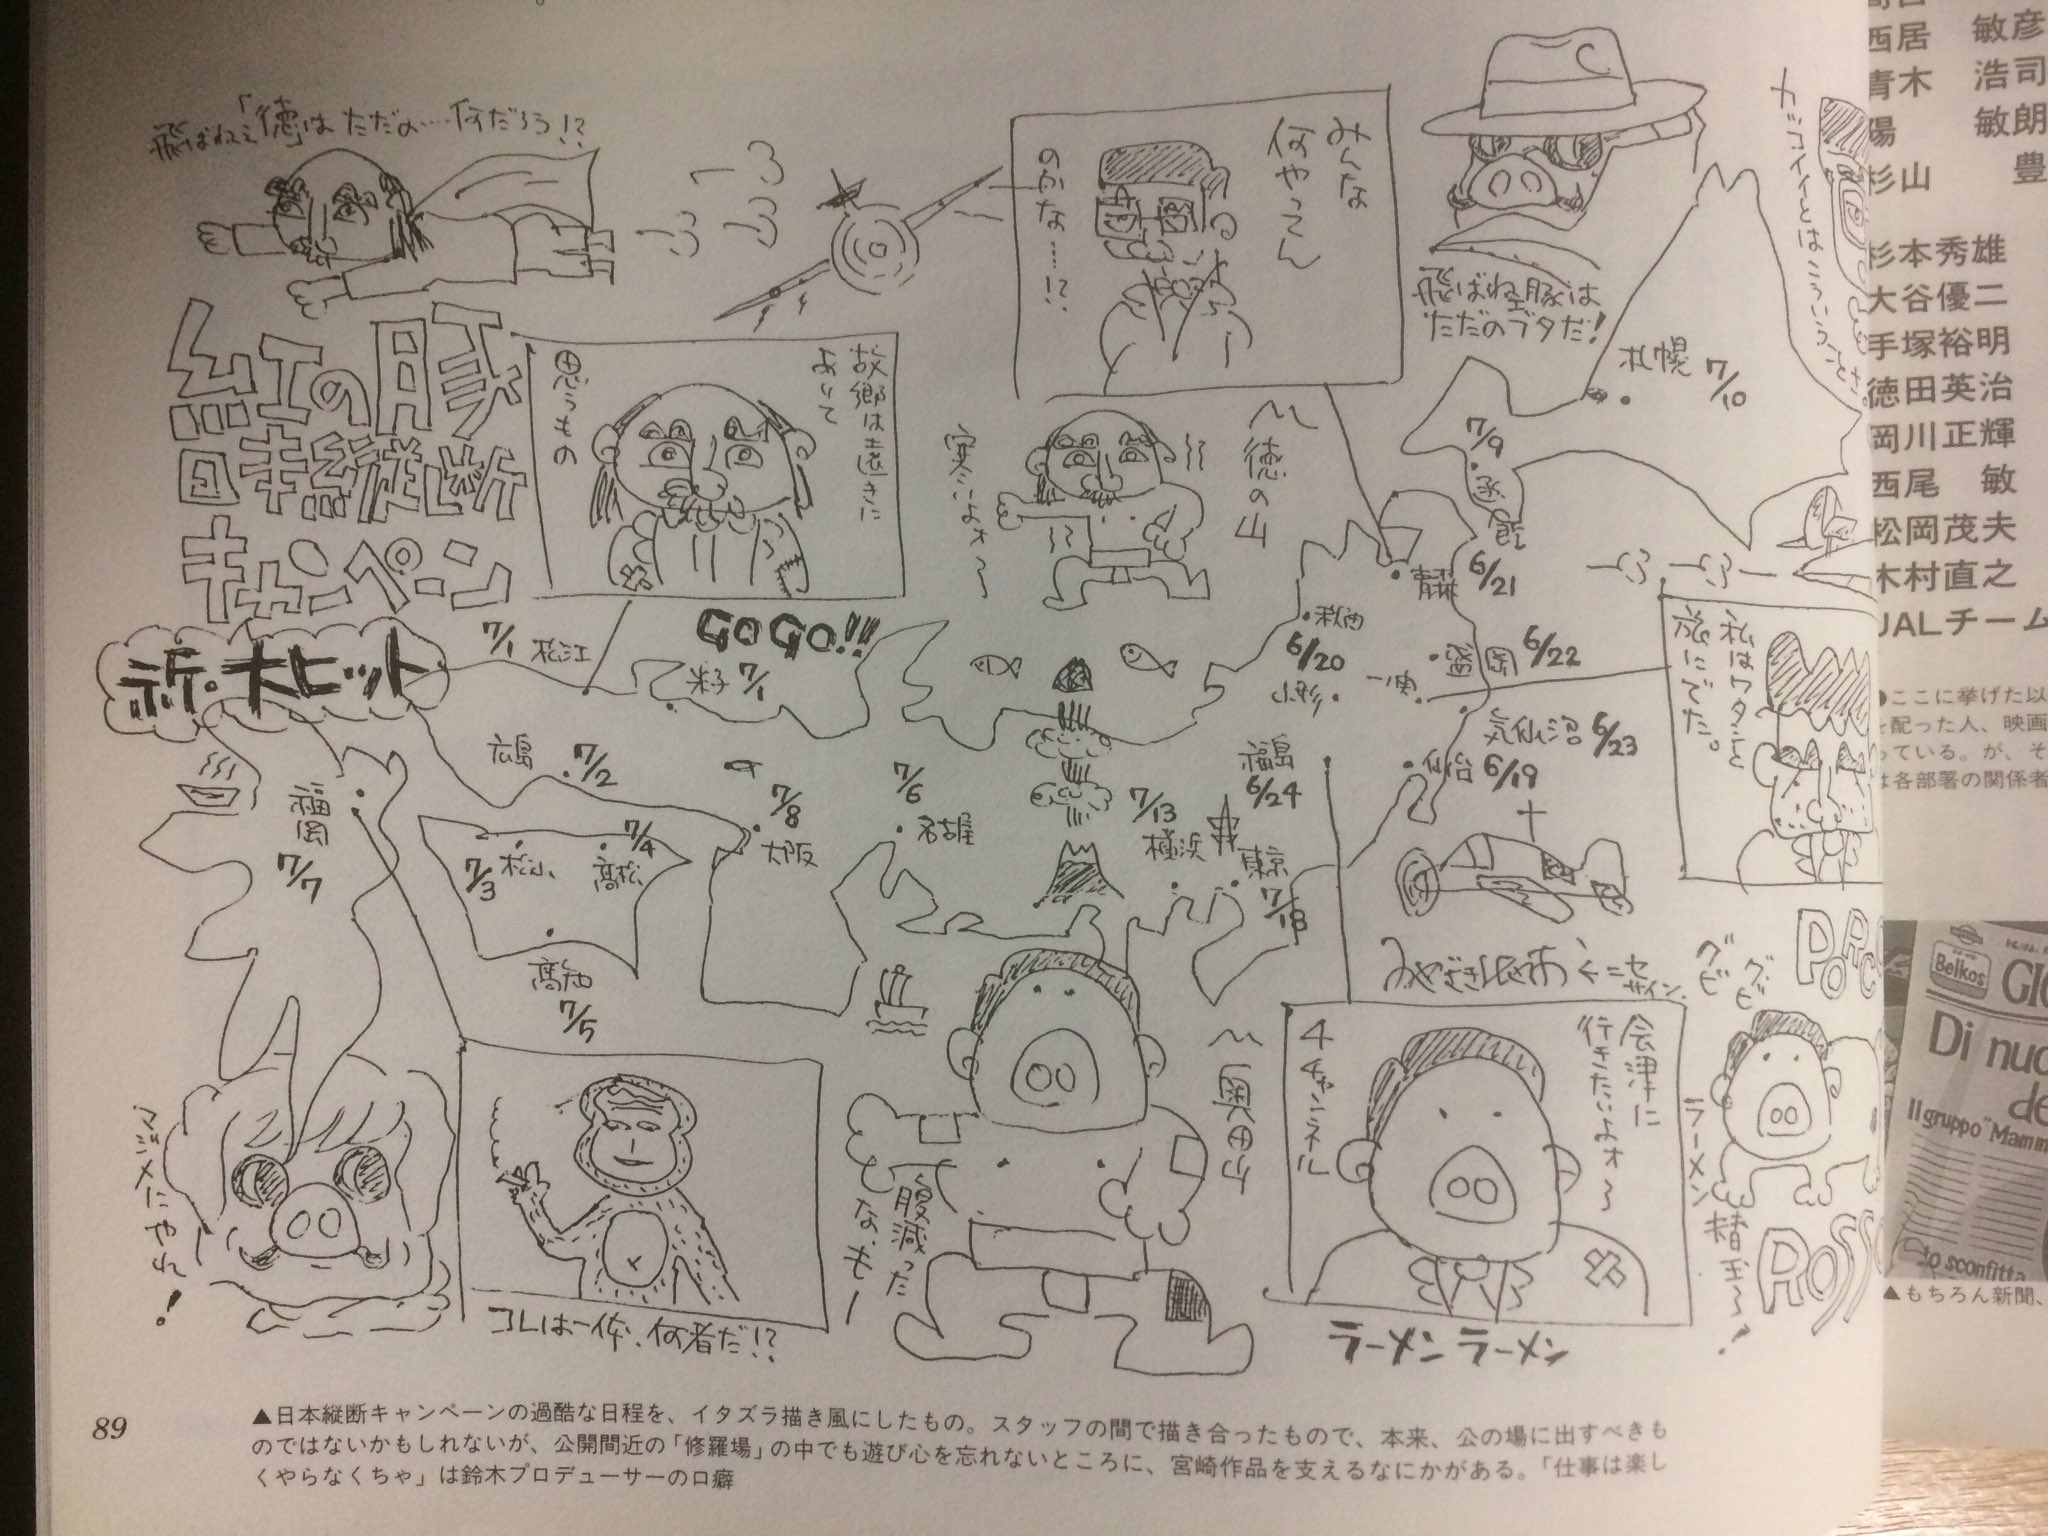 飛ばねえ「徳」はただの…何だろう!?
紅の豚
日本縦断
キャンペーン
祈・大ヒット
故郷は遠きに
ありて
思うもの
GOGO!!
みんな
何やってん
のかな……!?
飛ばねェ豚は
ただのブタだ!
カッコイイとはこういうことさ。
〜徳の山
寒いよォ〜
札幌 7/10
7/9
函館
青森 6/21
秋田
6/20
盛岡 6/22
一関
山形
気仙沼 6/23
仙台 6/19
福島
6/24
私はワタシと
旅にでた。
7/1 松江
米子 7/1
広島 7/2
7/8
大阪
7/6
名古屋
7/13
横浜
東京
7/18
福岡
7/7
7/3 松山
7/4
高松
高知
7/5
みやざきはやお ←ニセ
サイン
グビ
グビ
PORC
ROSSO
ラーメン
マジメにやれ!
コレは一体、何者だ!?
腹減った
なぁもー
〜奥田
会津に
行きたいよォ〜
4チャンネル
ラーメン ラーメン
89
▲日本縦断キャンペーンの過酷な日程を、イタズラ描き風にしたもの。スタッフの間で描き合ったもので、本来、公の場に出すべきも
のではないかもしれないが、公開間近の「修羅場」の中でも遊び心を忘れないところに、宮崎作品を支えるなにかがある。「仕事は楽し
くやらなくちゃ」は鈴木プロデューサーの口癖
西居 敏彦
青木 浩司
陽 敏朗
杉山 豊
杉本秀雄
大谷優二
手塚裕明
徳田英治
岡川正輝
西尾 敏
松岡茂夫
木村直之
JALチーム
●ここに挙げた以
を配った人、映画
っている。が、そ
は各部署の関係者
Belkos
GIO
Di nuo
de
Il gruppo "Mamm
to sconfitta
▲もちろん新聞、